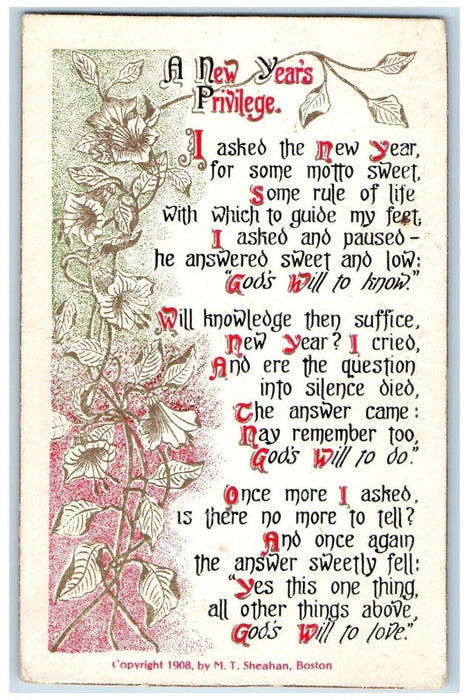 A New Year's
Privilege.
I asked the New Year,
for some motto sweet,
Some rule of life
with which to guide my feet,
I asked and paused –
he answered sweet and low:
"God's Will to know."
Will knowledge then suffice,
New Year? I cried,
And ere the question
into silence died,
The answer came:
Nay remember too,
God's Will to do."
Once more I asked,
is there no more to tell?
And once again
the answer sweetly fell:
"Yes this one thing,
all other things above,
God's Will to love."
Copyright 1908, by M. T. Sheahan, Boston